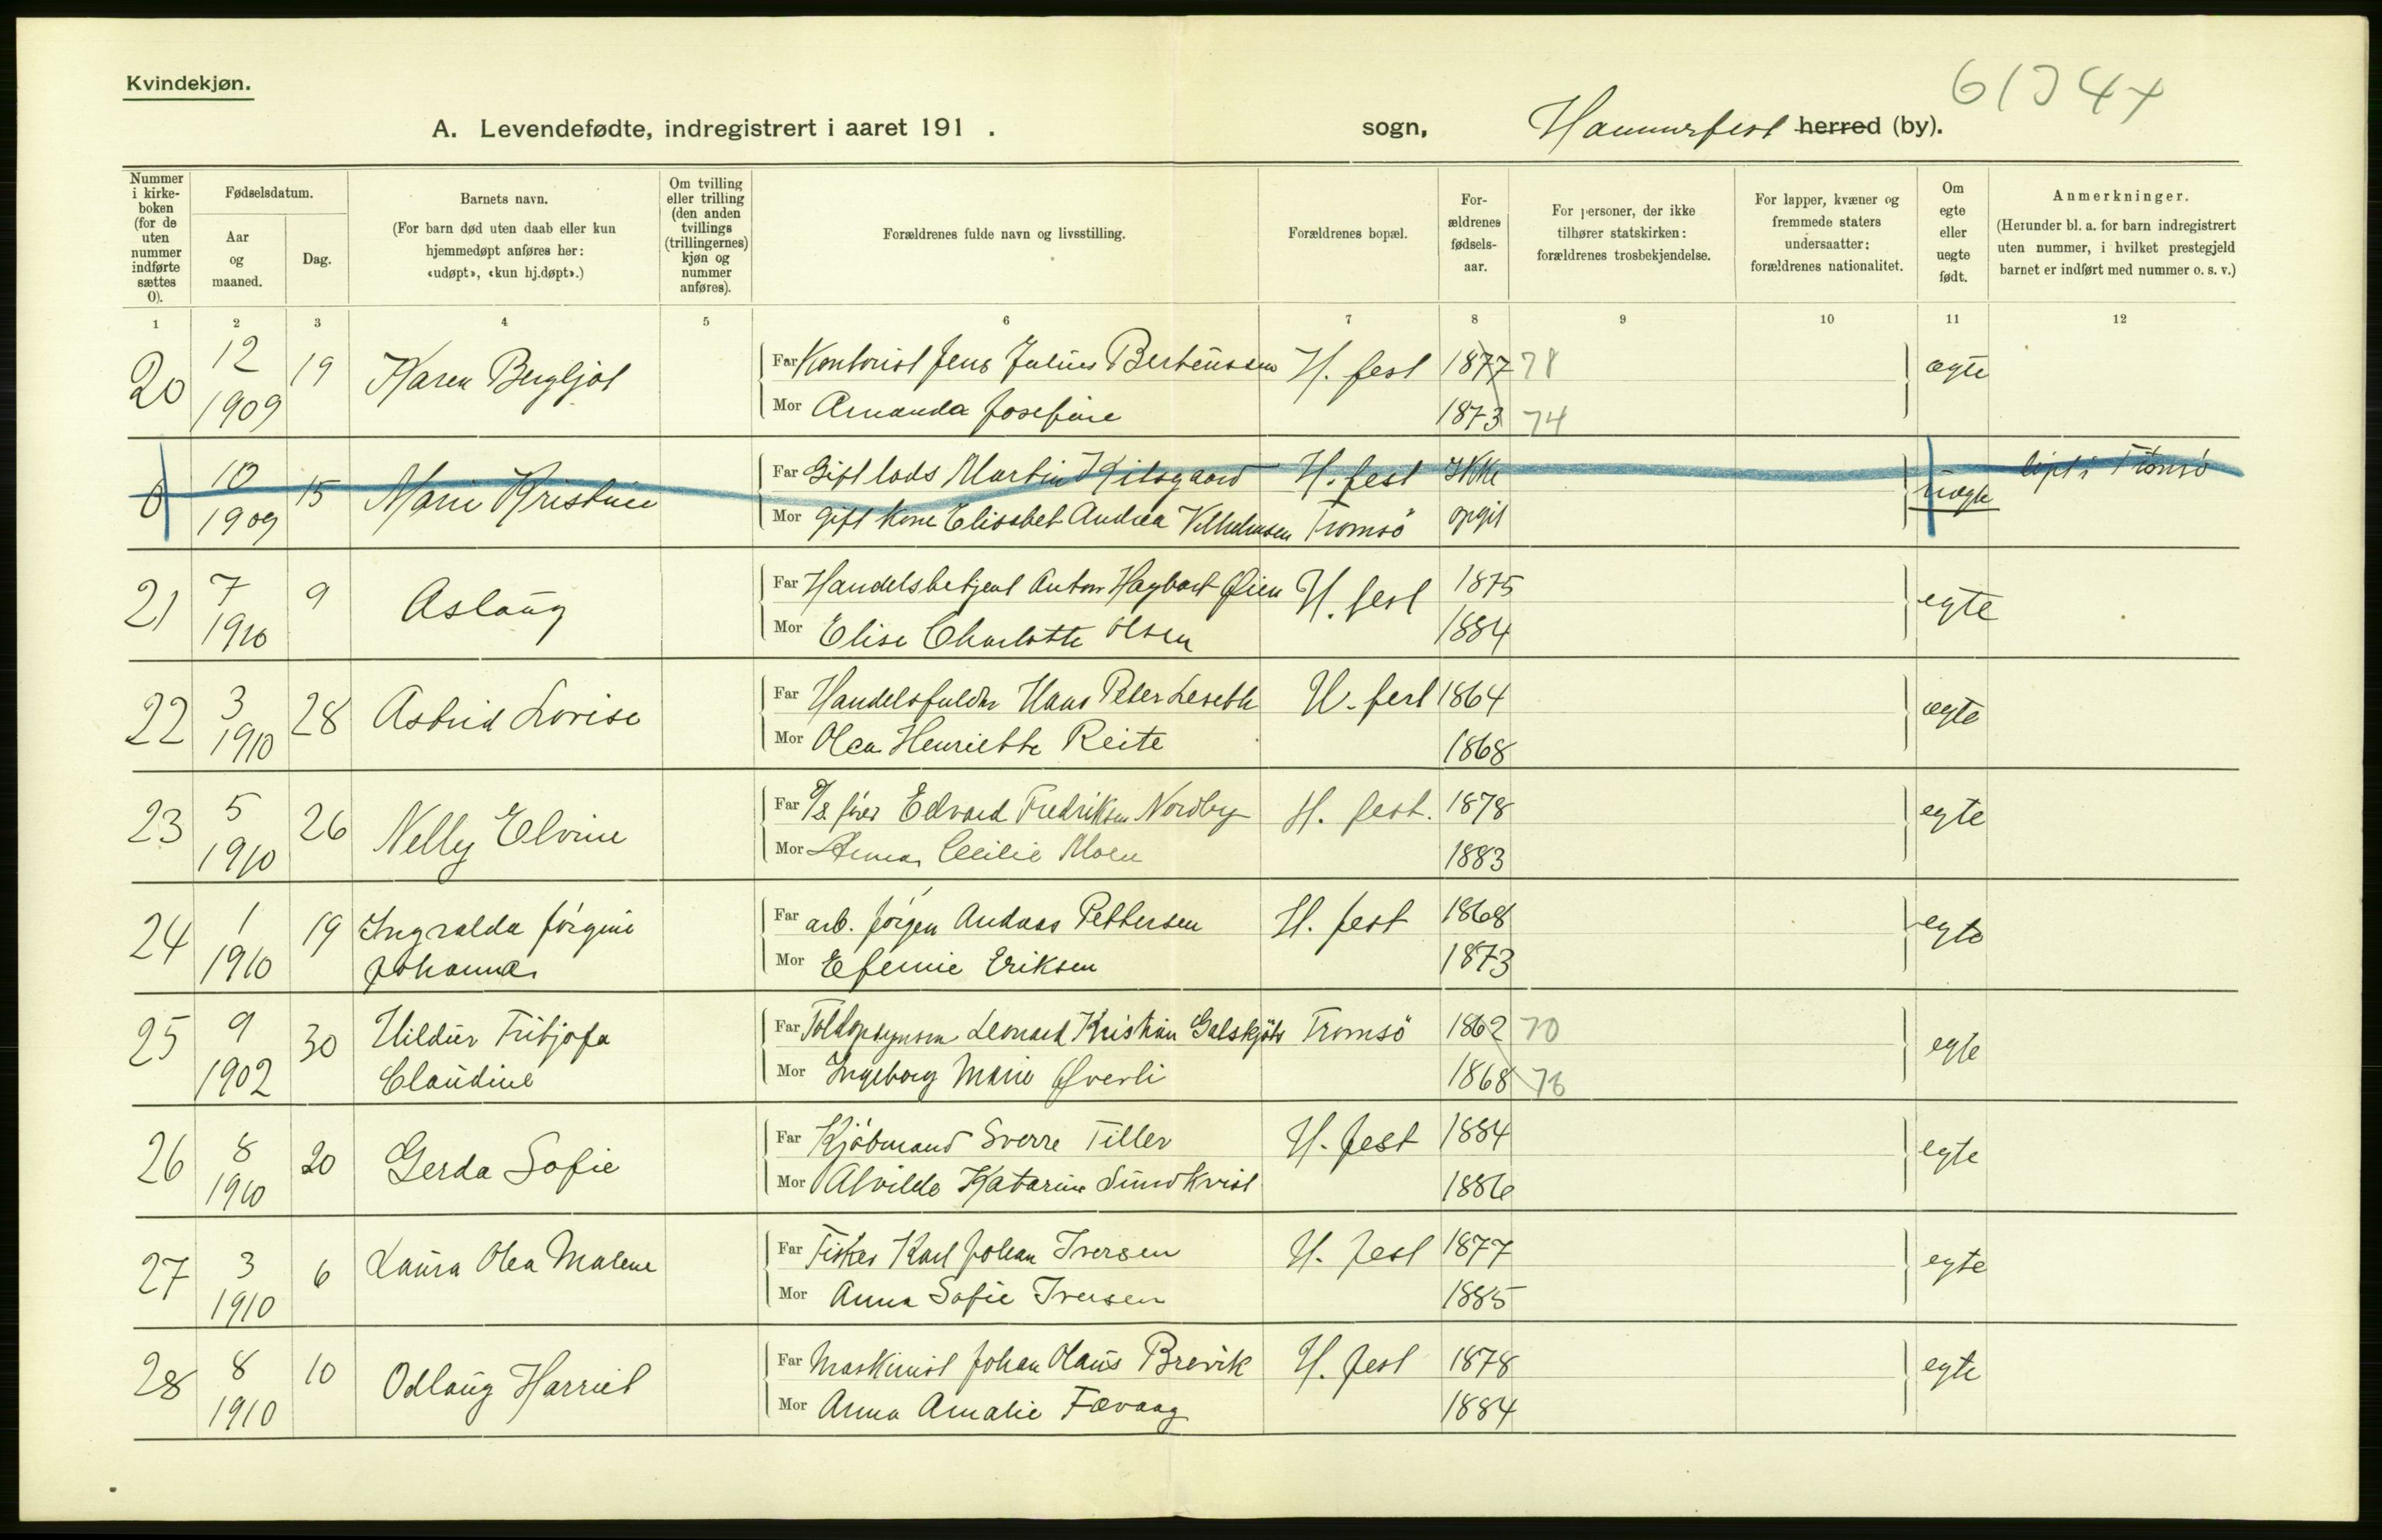 Kvindekjøn.
A. Levendefødte, indregistrert i aaret 191 . sogn, Hammerfest herred (by).
Nummer i kirkeboken (for de uten nummer indførte sættes 0).
Fødselsdatum.
Aar og maaned.
Dag.
Barnets navn.
(For barn død uten daab eller kun hjemmedøpt anføres her: «udøpt», «kun hj.døpt».)
Om tvilling eller trilling (den anden tvillings (trillingernes) kjøn og nummer anføres).
Forældrenes fulde navn og livsstilling.
Forældrenes bopæl.
Forældrenes fødselsaar.
For personer, der ikke tilhører statskirken: forældrenes trosbekjendelse.
For lapper, kvæner og fremmede staters undersaatter: forældrenes nationalitet.
Om egte eller uegte født.
Anmerkninger.
(Herunder bl. a. for barn indregistrert uten nummer, i hvilket prestegjeld barnet er indført med nummer o. s. v.)
1 2 3 4 5 6 7 8 9 10 11 12
20 12 1909 19 Karen Bergljot Far Kontorist Jens Julius Berteussen H. fest 1877 78 ægte
Mor Amanda Josefine 1873 74
0 10 1909 15 Marie Kristine Far Gift lods Martin Kilsgaard H. fest Ikke uægte Tromsö
Mor gift kone Elisabet Andrea Vilhelmsen Tromsö opgit
21 7 1910 9 Aslaug Far Handelsbetjent Anton Hagbart Øien H. fest 1875 egte
Mor Elise Charlotte Olsen 1884
22 3 1910 28 Astrid Lovise Far Hans Peter Leseth H. fest 1864 ægte
Mor Olea Henriette Reite 1868
23 5 1910 26 Nelly Elvine Far Edvard Fredriksen Nordby H. fest. 1878 egte
Mor Anna Cecilie Moen 1883
24 1 1910 19 Ingvalda Jörgine Johanna Far arb. Jörgen Andreas Pettersen H. fest 1868 egte
Mor Efemie Eriksen 1873
25 9 1902 30 Hildur Fritjofa Claudine Far Leonard Kristian Galskjöt Tromsö 1862 70 egte
Mor Ingeborg Marie Øverli 1868 76
26 8 1910 20 Gerda Sofie Far Kjöbmand Sverre Tiller H. fest 1884 egte
Mor Alvilde Katarine Sundkvist 1886
27 3 1910 6 Laura Olea Malene Far Fisker Karl Johan Iversen H. fest 1877 egte
Mor Anna Sofie Iversen 1885
28 8 1910 10 Odlaug Harriet Far Maskinist Johan Olaus Brevik H. fest 1878 egte
Mor Anna Amalie Fævaag 1884